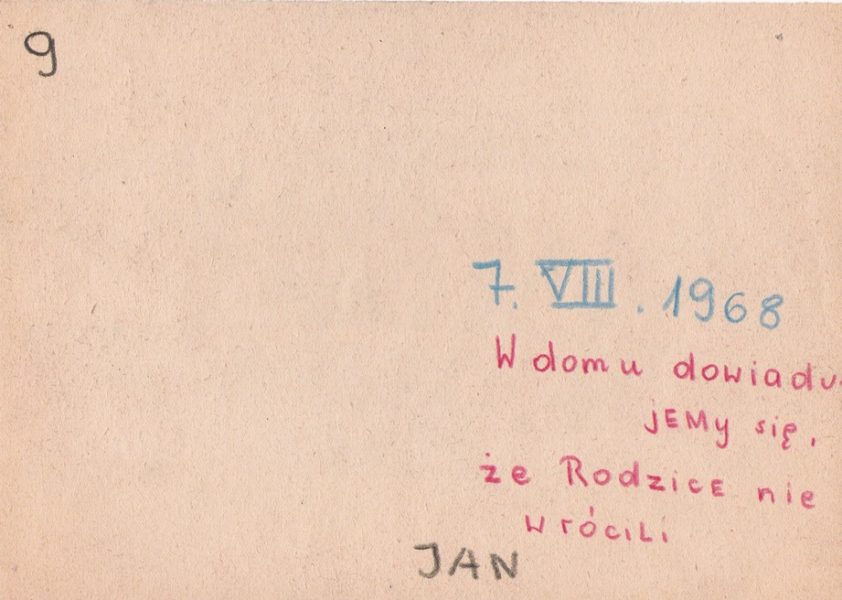 9
7. VIII. 1968
W domu dowiadu-
jEMy się,
że RodzicE nie
wrócili
JAN